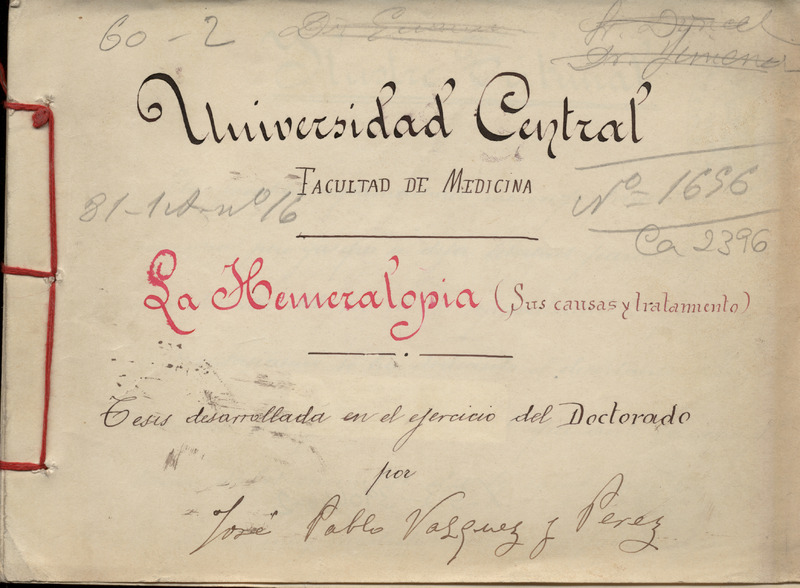 60-2
Universidad Central
FACULTAD DE MEDICINA
Nº 1656
Ca 2396
La Hemeralopia (Sus causas y tratamiento)
Tesis desarrollada en el ejercicio del Doctorado
por
José Pablo Vazquez y Perez